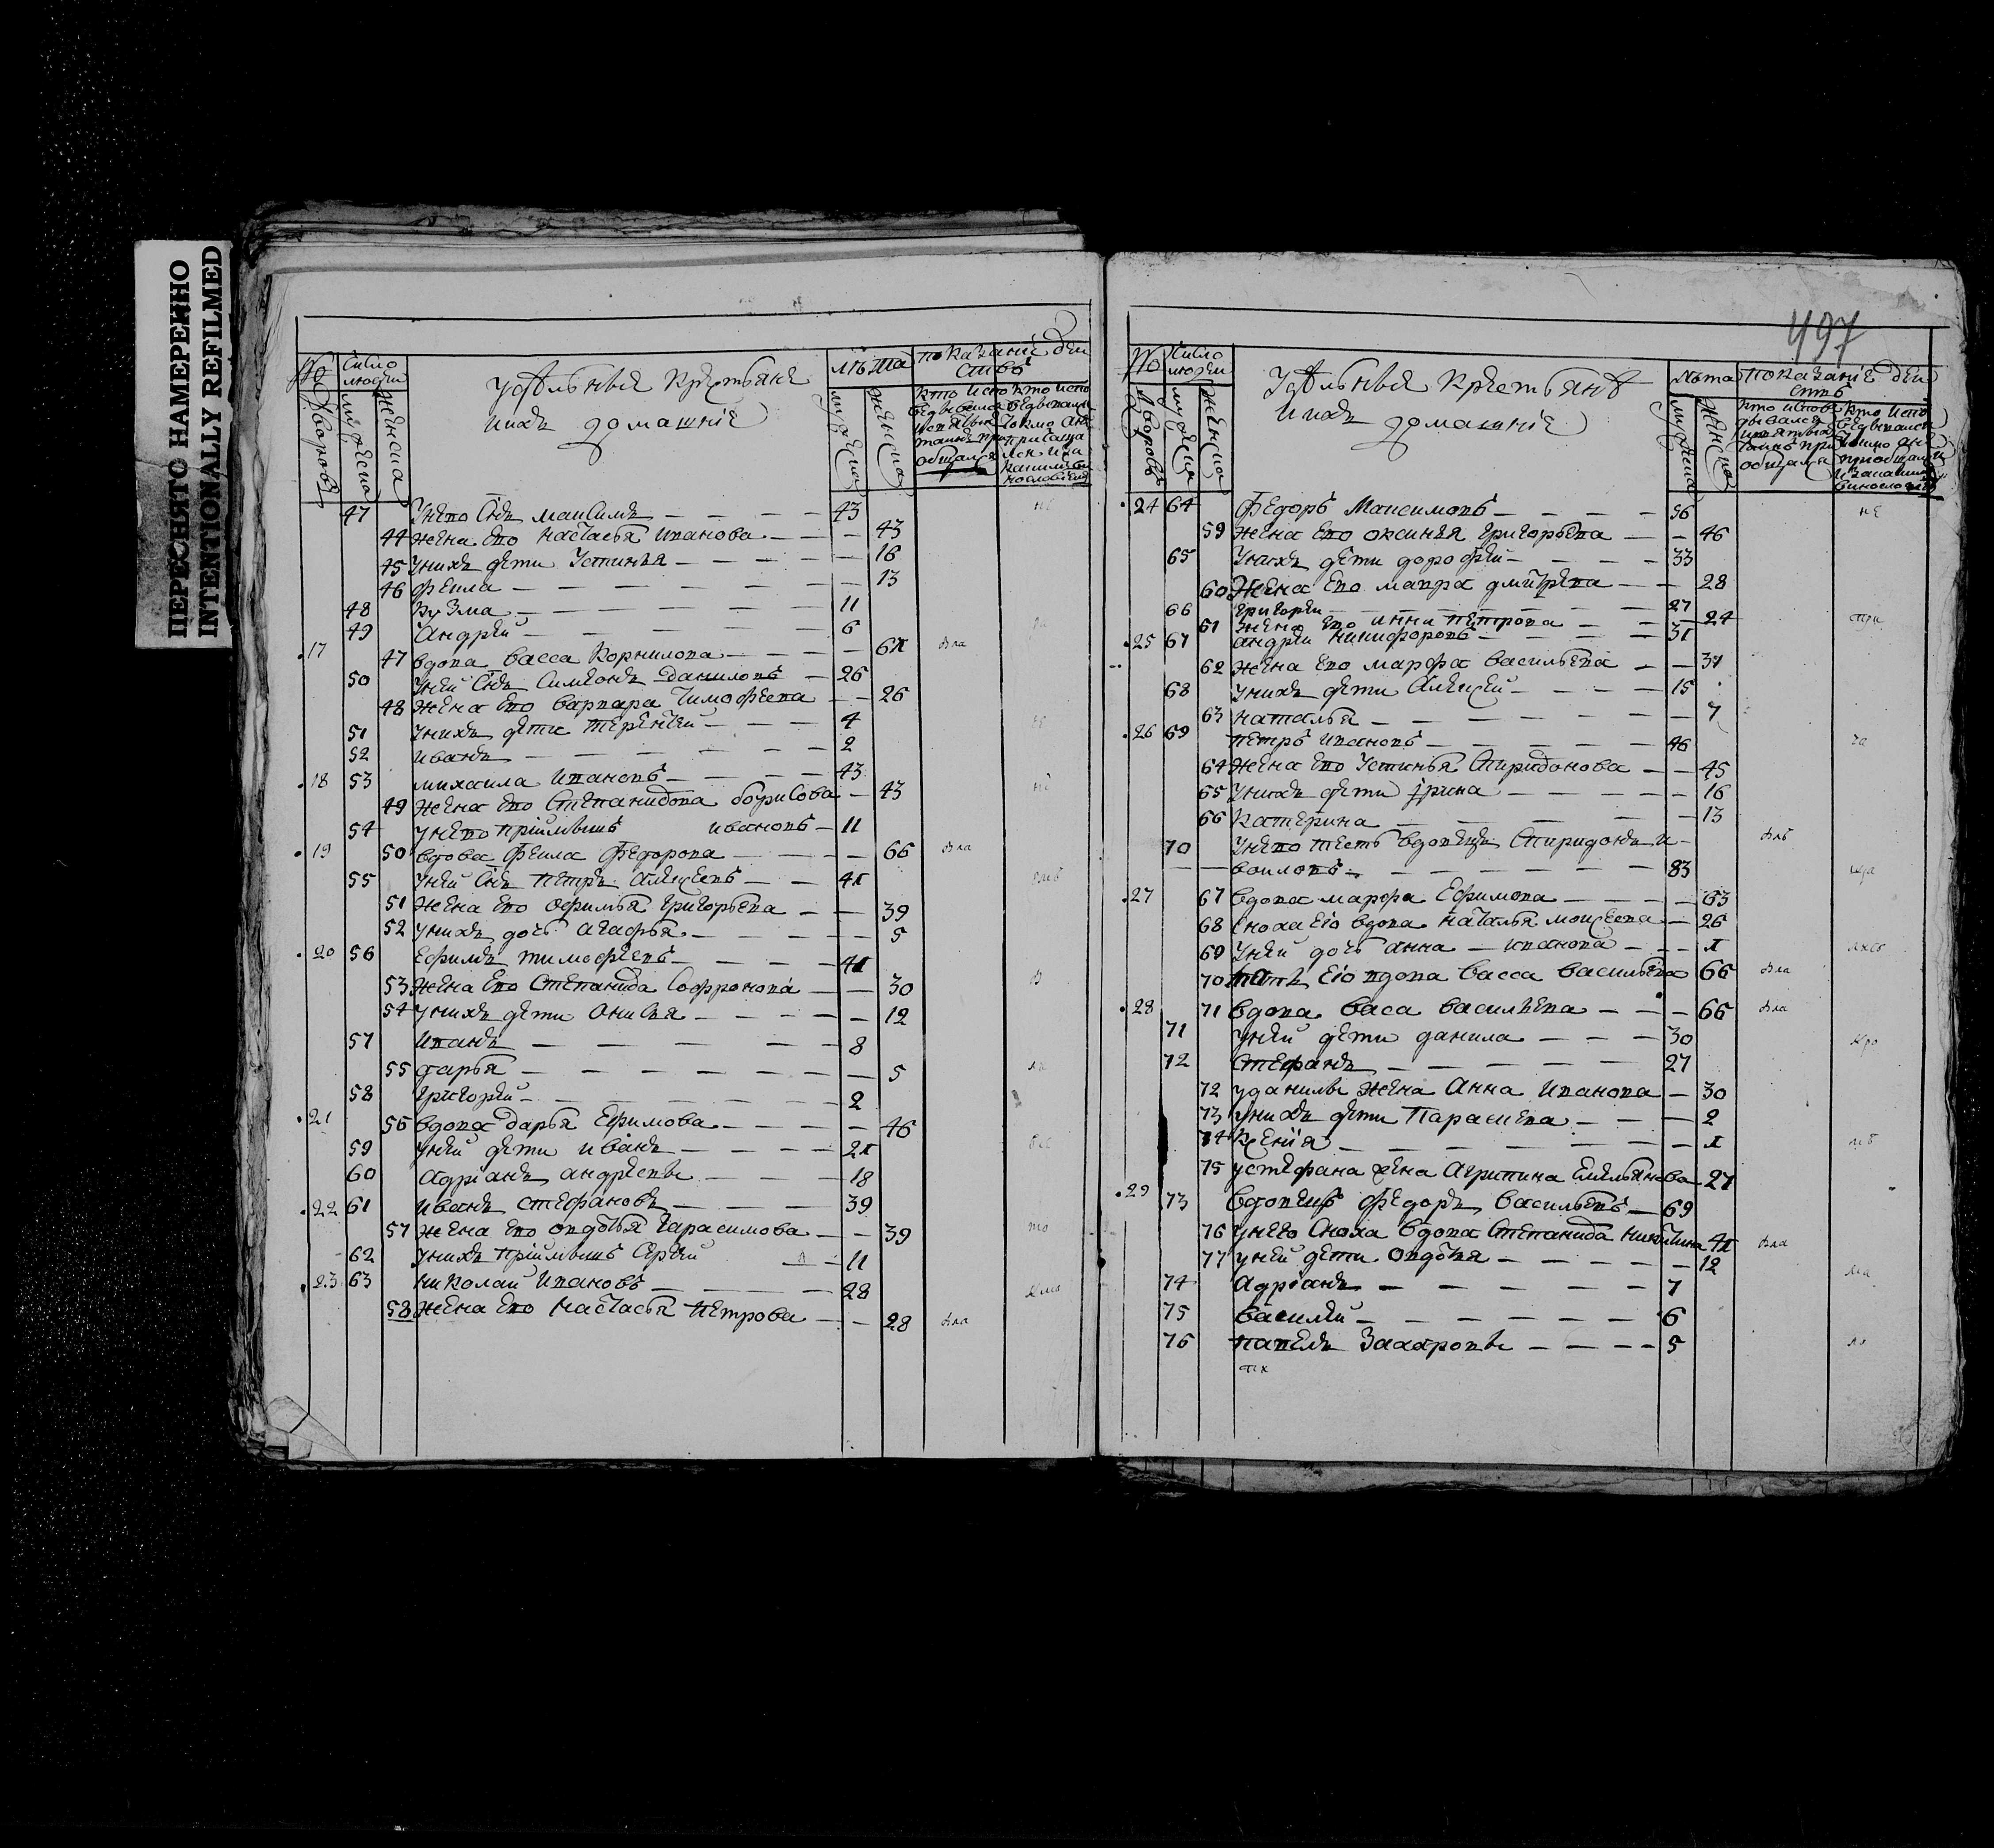 ПЕРЕСНЯТО НАМЕРЕННО
INTENTIONALLY REFILMED
№ дворовъ
число людей
мужеска
женска
Удѣльныя крестьяне
и ихъ домашніе
лѣта
мужеска
женска
показаніе дѣй
ства
47 У него снъ максимъ 43
44 жена его настасья иванова 43
45 У нихъ дети Устинья 16
46 фекла 13
48 кузма 11
49 Андрей 6
17 47 вдова васса корнилова 61
50 У ней снъ Симеонъ даниловъ 26
48 жена его варвара тимофеева 26
51 У нихъ дети терентей 4
52 иванъ 2
18 53 михаила ивановъ 43
49 жена его Степанидова борисова 43
54 У него пріимышъ ивановъ 11
19 50 вдова фекла федорова 66
55 У ней снъ петръ алексеевъ 41
51 жена его офимья григорьева 39
52 У нихъ дочь агафья 5
20 56 Ефимъ тимофеевъ 41
53 жена его Степанида Софронова 30
54 У нихъ дети Анисья 12
57 иванъ 8
55 дарья 5
58 григорей 2
21 56 вдова дарья Ефимова 46
59 У ней дети иванъ 21
60 Адріанъ андреевы 18
22 61 иванъ стефановъ 39
57 жена его овдотья гарасимова 39
62 У нихъ пріимышъ Сргей 11
23 63 николай ивановъ 28
58 жена его настасья петрова 28
497
№ дворовъ
число людей
мужеска
женска
Удѣльныя крестьянѣ
и ихъ домашніе
лѣта
мужеска
женска
показаніе дѣй
ствъ
24 64 Федоръ Максимовъ 56
59 жена его оксинья григорьева 46
65 У нихъ дети дорофей 33
60 жена его мавра дмитрева 28
66 григорей 27
61 жена его анна петрова 24
25 67 андрей никифоровъ 31
62 жена его марфа васильева 31
68 У нихъ дети алексей 15
63 наталья 7
26 69 петръ ивановъ 46
64 жена его Устинья Спиридонова 45
65 У нихъ дети ірина 16
66 катерина 13
70 У него тесть вдовецъ Спиридонъ и
воиловъ 83
27 67 вдова марфа Ефимова 63
68 сноха еіо вдова наталья моисеева 26
69 У ней дочь анна иванова 1
70 мать еіо вдова васса васильева 66
28 71 вдова васа васильева 66
71 У ней дети данила 30
72 Стефанъ 27
72 у данилы жена Анна иванова 30
73 у нихъ дети Парасшева 2
74 ксенія 1
75 у стефана жена Агрипина Емельянова 27
29 73 вдовецъ федоръ васильевъ 69
76 У него сноха вдова Степанида никитина 41
77 у ней дети овдотья 12
74 Адріанъ 7
75 василей 6
76 павелъ Захаровы 5